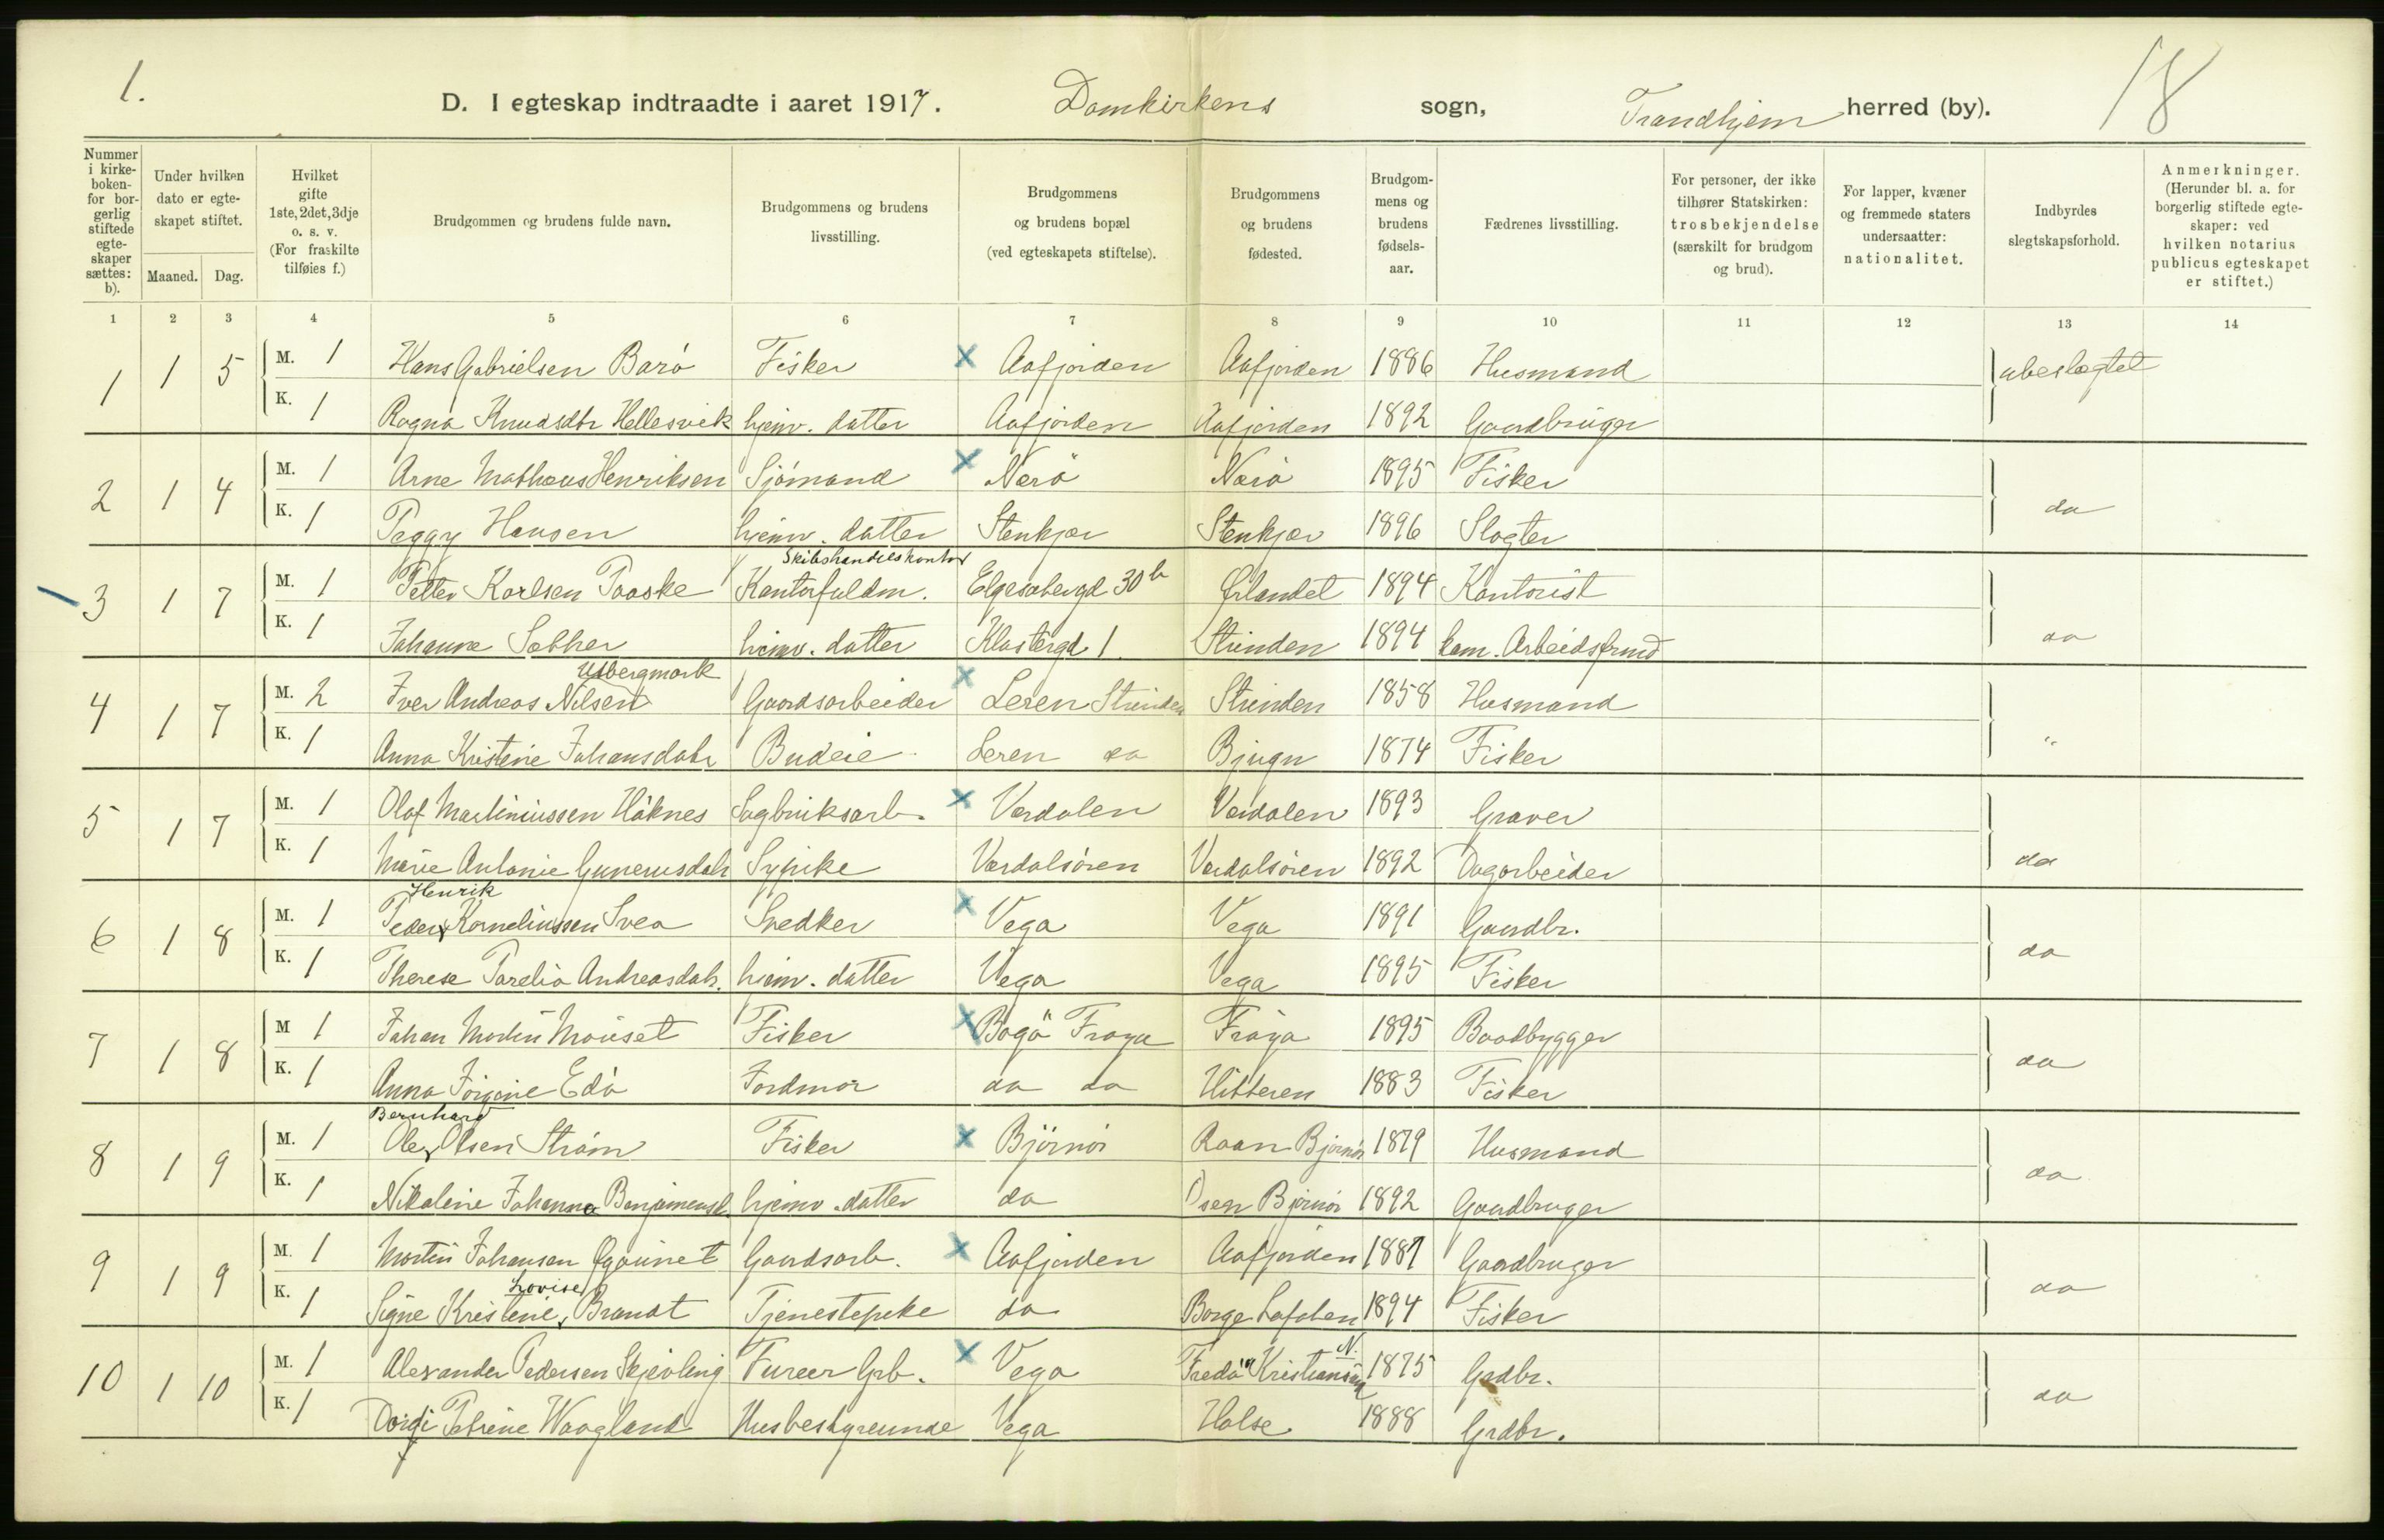 1.
D. I egteskap indtraadte i aaret 1917. Domkirkens sogn, Trondhjem herred (by). 18
Nummer i kirke-boken- for bor-gerlig stiftede egte-skaper sættes: b).
Under hvilken dato er egte-skapet stiftet.
Maaned. Dag.
Hvilket gifte 1ste, 2det, 3dje o. s. v. (For fraskilte tilføies f.)
Brudgommen og brudens fulde navn.
Brudgommens og brudens livsstilling.
Brudgommens og brudens bopæl (ved egteskapets stiftelse).
Brudgommens og brudens fødested.
Brudgom-mens og brudens fødsels-aar.
Fædrenes livsstilling.
For personer, der ikke tilhører Statskirken: trosbekjendelse (særskilt for brudgom og brud).
For lapper, kvæner og fremmede staters undersaatter: nationalitet.
Indbyrdes slegtskapsforhold.
Anmerkninger. (Herunder bl. a. for borgerlig stiftede egte-skaper: ved hvilken notarius publicus egteskapet er stiftet.)
1 2 3 4 5 6 7 8 9 10 11 12 13 14
1 1 5 M. 1 Hans Gabrielsen Barö Fisker x Aafjorden Aafjorden 1886 Husmand ubeslægtet
K. 1 Ragna Knudsdtr Hellesvik hjemv. datter Aafjorden Aafjorden 1892 Gaardbruger
2 1 4 M. 1 Arne Mathæus Henriksen Sjömand x Nærö Nærö 1895 Fisker do
K. 1 Peggy Hansen hjemv. datter Stenkjær Stenkjær 1896 Slagter
Skibshandelskontor
3 1 7 M. 1 Petter Karlsen Paaske Kontorfuldm. Elgesæbergd 30b Ørlandet 1894 Kontorist do
K. 1 Johanne Sæther hjemv. datter Klostergd. 1 Strinden 1894 kom. Arbeidsfrmd
Utbergmark
4 1 7 M. 2 Iver Andreas Nilsen Gaardsarbeider x Leren Strinden Strinden 1858 Husmand "
K. 1 Anna Kristine Johansdatr Budeie Leren do Bjugn 1874 Fisker
5 1 7 M. 1 Olaf Martiniussen Håknes Sagbruksarb. x Værdalen Værdalen 1893 Graver do
K. 1 Marie Antonie Gunerusdatr Sypike Værdalsören Værdalsören 1892 Dagarbeider
Henrik
6 1 8 M. 1 Peder Korneliussen Svea Snedker x Vega Vega 1891 Gaardbr. do
K. 1 Therese Parelia Andreasdatr. hjemv. datter Vega Vega 1895 Fisker
7 1 8 M 1 Johan Martin Mouset Fisker x Bogö Fröya Fröya 1895 Baadbygger do
K. 1 Anna Jörgine Edö Jordmor do do Hitteren 1883 Fisker
Bernhard
8 1 9 M. 1 Ole Olsen Ström Fisker x Björnör Roan Björnör 1879 Husmand do
K. 1 Nikoline Johanna Benjaminsd. hjemv. datter do Osen Björnör 1892 Gaardbruger
9 1 9 M. 1 Morten Johansen Gaardsarb. x Aafjorden Aafjorden 1887 Gaardbruger do
Lovise
K. 1 Signe Kristine Brandt Tjenestepike do Borge Lofoten 1894 Fisker
10 1 10 M. 1 Alexander Pedersen Skjevling Grb. x Vega Fredö Kristiansun N. 1875 Grdbr. do
K. 1 Dordi Petrine Waagland Husbestyrerinde Vega Halse 1888 Grdbr.